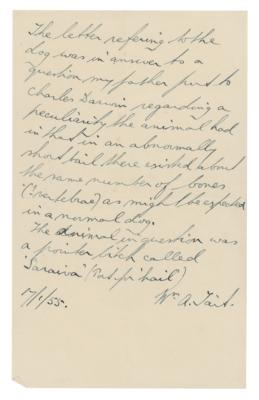 The letter refering to the
dog was in answer to a
question my father put to
Charles Darwin regarding a
peculiarity the animal had
in that in an abnormally
short tail there existed about
the same number of bones
(? vertebrae) as might be expected
in a normal dog.
The animal in question was
a pointer bitch called
"Saraiva" (Port. for hail)
Wm A. Tait.
17/1/55.